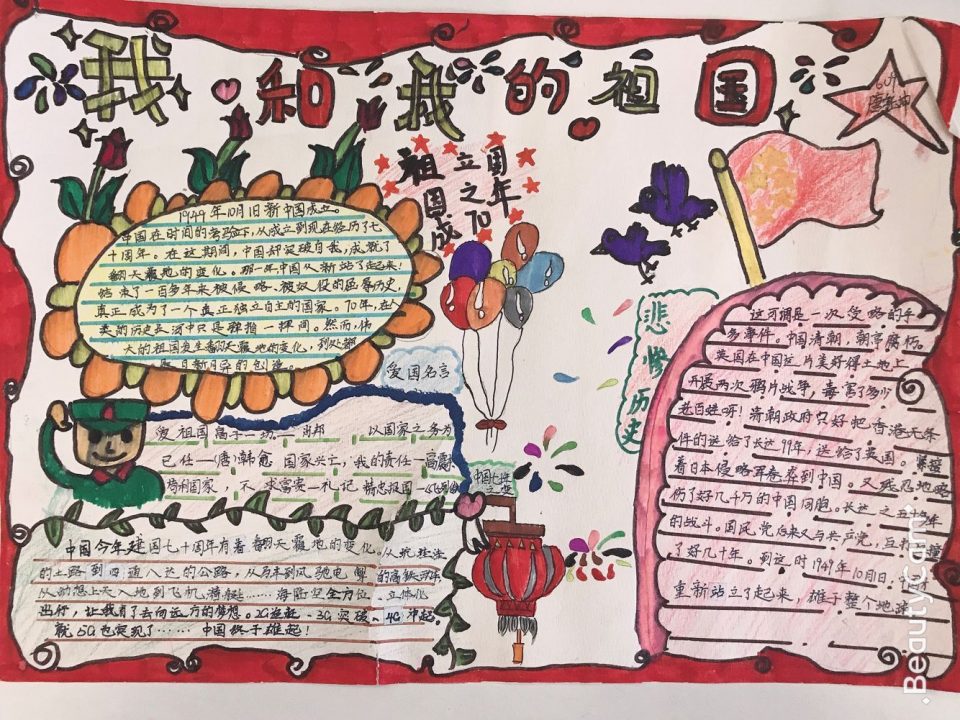 我和我的祖国
祖国成立
之70周年
1949年10月1日新中国成立。
中国在时间的考验下,从成立到现在经历了七
十周年。在这期间,中国却突破自我,成就了
翻天覆地的变化。那一年,中国从新站了起来!
结束了一百多年来被侵略、被奴役的屈辱历史,
真正成为了一个真正独立自主的国家。70年,在人
类的历史长河中只是弹指一挥间。然而,伟
大的祖国发生翻天覆地的变化,到处都
是日新月异的创造。
爱国名言
爱祖国高于一切。 肖邦 以国家之务为
己任—(唐)韩愈 国家兴亡,我的责任—高震
苟利国家,不求富贵—礼记 精忠报国—
中国七十年
之变
中国今年建国七十周年有着翻天覆地的变化。从坑坑洼洼
的土路到四通八达的公路,从马车到风驰电掣的高铁
从幻想上天入地到飞机 海陆空全方位 立体化
出行,让我有了去向远方的梦想。2G追赶、3G突破、4G冲起。
就5G也实现了……中国终于雄起!
悲惨历史
这可谓是一次受略的年
多事件。中国清朝,朝帝腐朽。
英国在中国这片美好得土地上
开展两次鸦片战争,毒害了多少
老百姓呀!清朝政府只好把香港无条
件的送给了长达99年,送给了英国。紧接
着日本侵略军卷袭到中国。又残忍地略
伤了好几十万的中国同胞。长达之
的战斗。国民党后来又与共产党,互相
了好几十年。到这时1949年10月1日.
重新站立了起来,雄于整个地球
BeautyCam